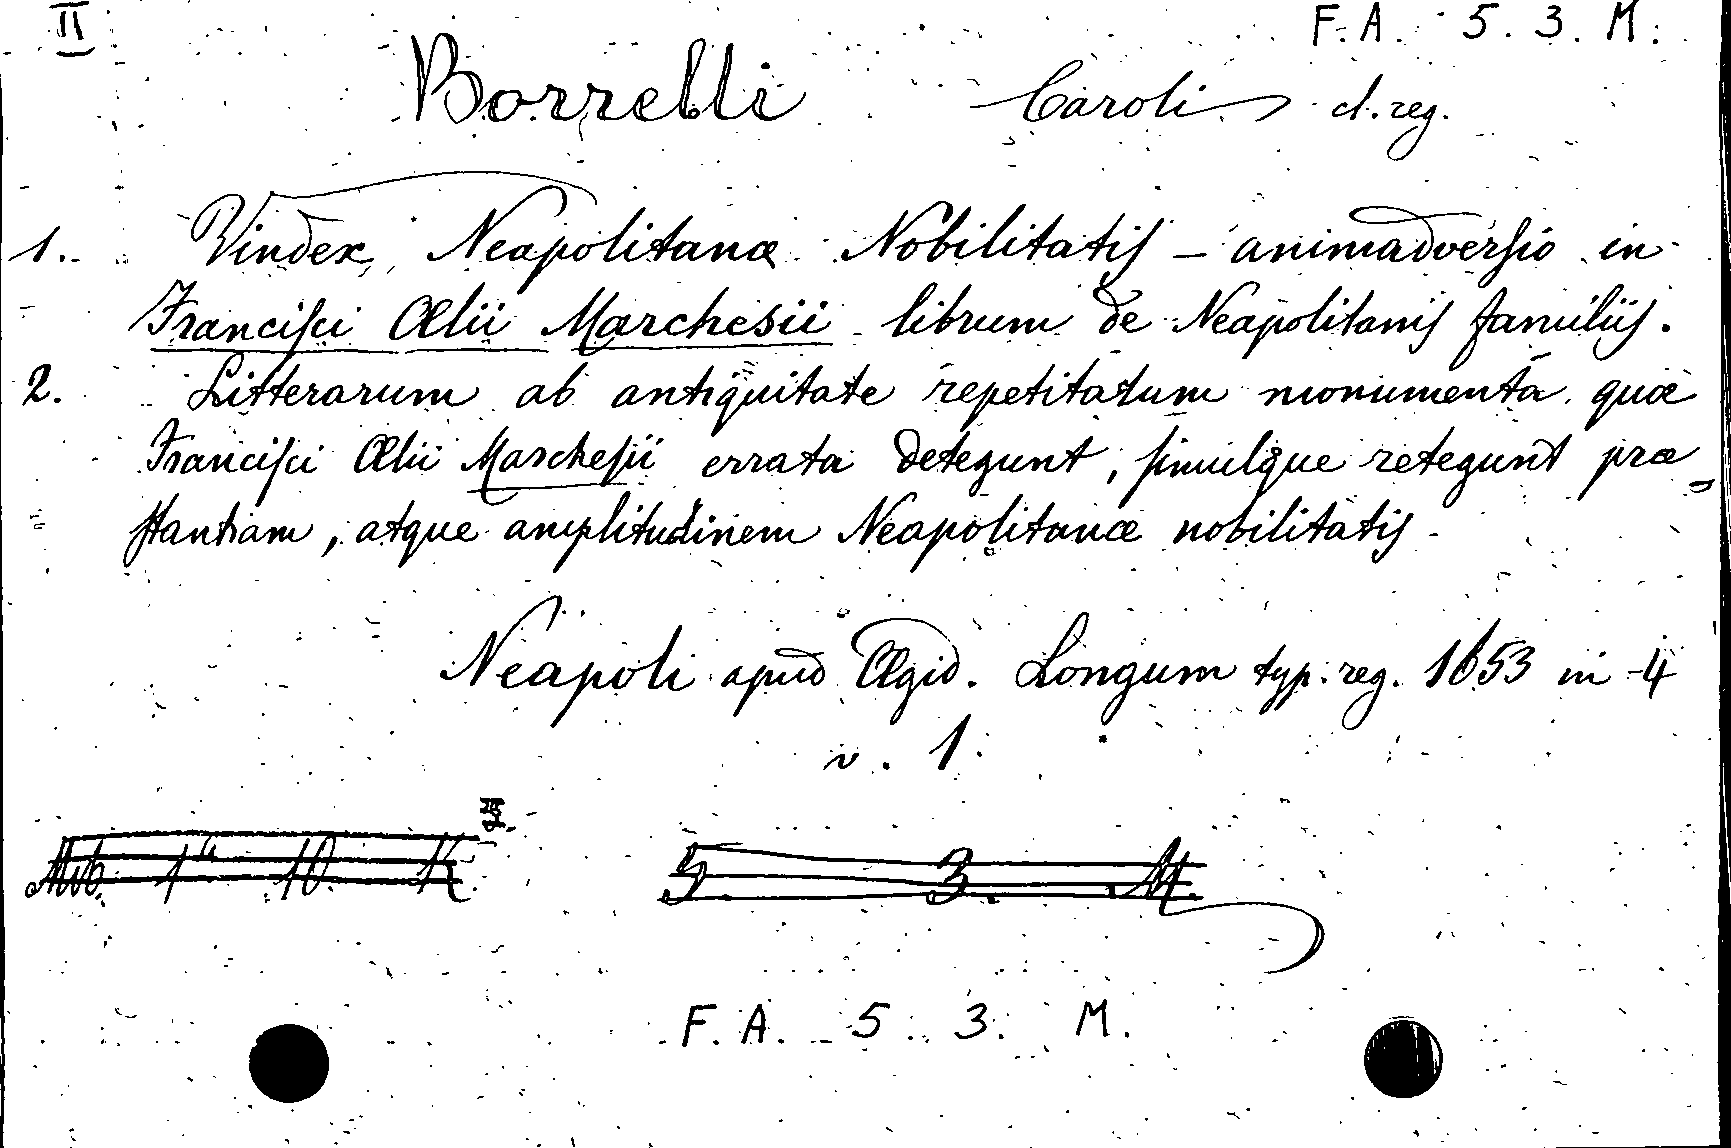 II F.A. 5. 3. M.
Borrelli Caroli cl. reg.
1. Vindex Neapolitanæ Nobilitatis – animadversio in
Francisci Ælii Marchesii librum de Neapolitanis familiis.
2. Litterarum ab antiquitate repetitarum monumenta quæ
Francisci Ælii Marchesii errata detegunt, simulque retegunt præ
stantiam, atque amplitudinem Neapolitanæ nobilitatis.
Neapoli apud Ægid. Longum typ. reg. 1653 in-4
v. 1.
5. 3. M.
F. A. 5. 3. M.